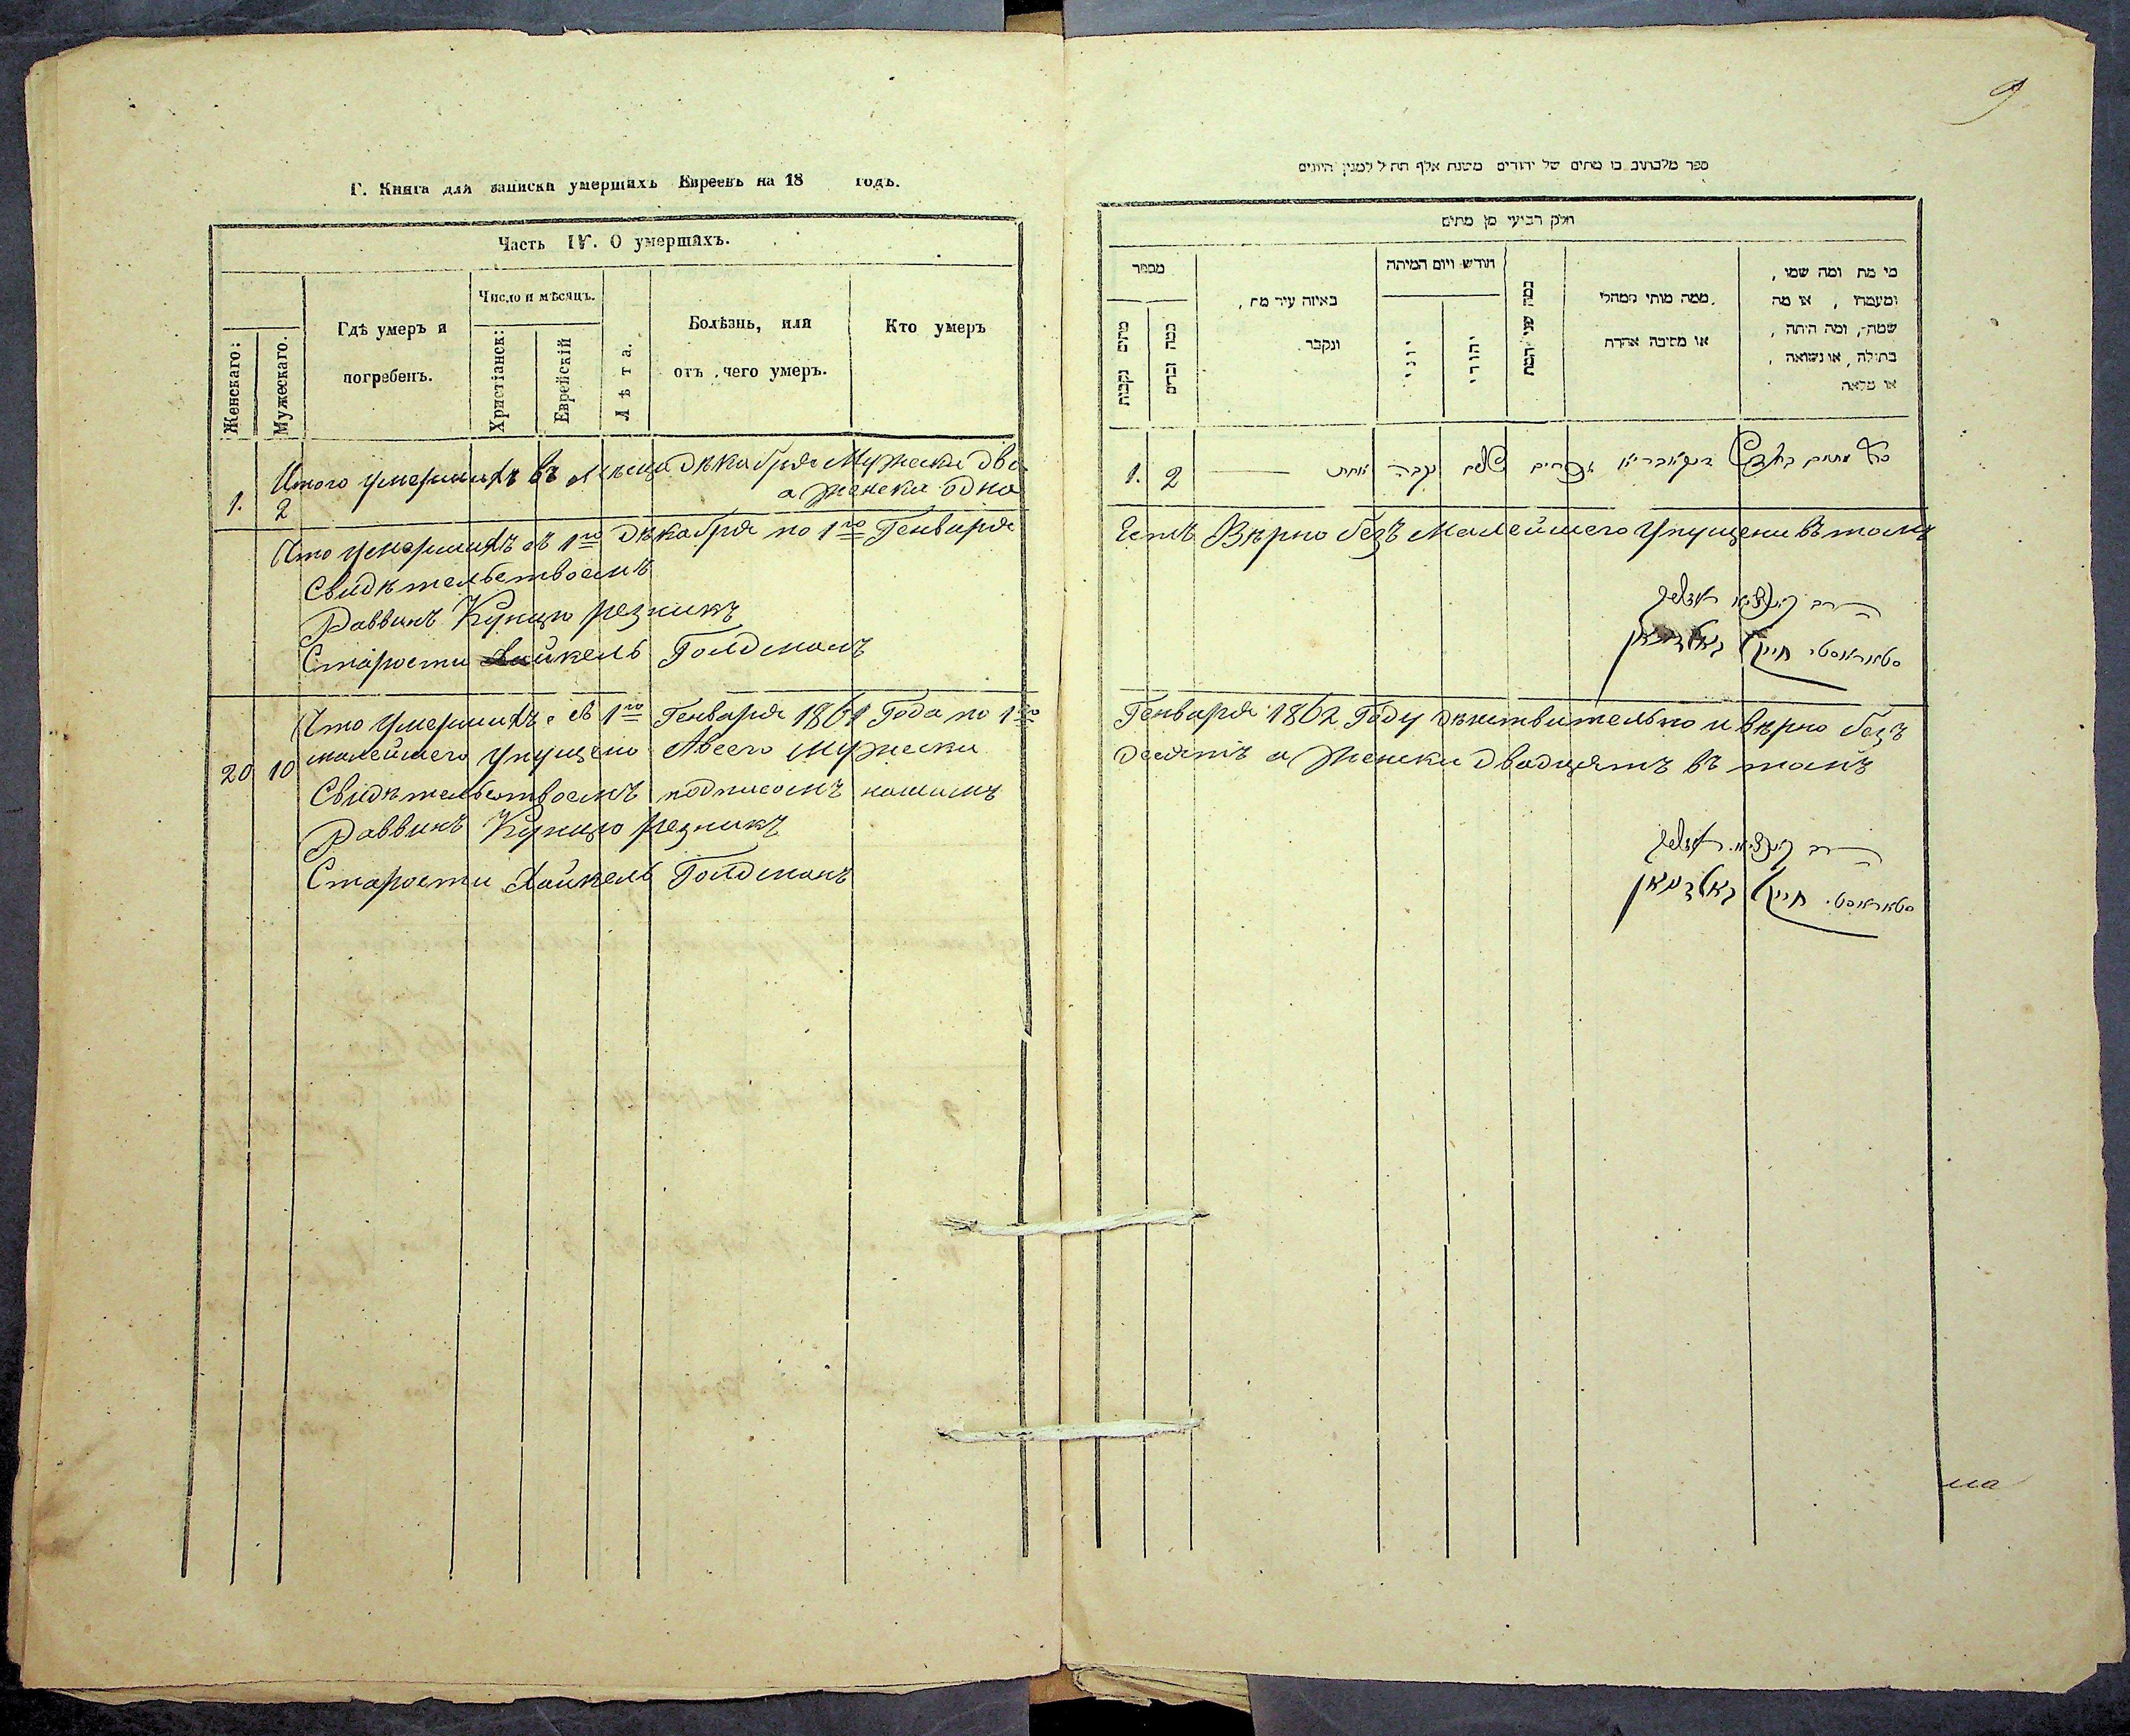 Г. Книга для записки умершихъ Евреевъ на 18 годъ.
Часть IV. О умершихъ.
Женскаго:
Мужескаго.
Гдѣ умеръ и
погребенъ.
Число и мѣсяцъ.
Христіанск:
Еврейскій
Лѣта.
Болѣзнь, или
отъ чего умеръ.
Кто умеръ
Итого умершихъ въ Мѣсице Дѣкабря Мужески два
а Женски одна
1. 2
Что умершихъ съ 1го Дѣкабря по 1го Генваря
Свидѣтельствоемъ
Раввинъ Кунцю резникъ
Старости Хайкель Голдманъ
Что умершихъ съ 1го Генваря 1861 Года по 1го
20 10 малейшего упущено Авсего Мужески
Свидѣтельствоемъ подписомъ нашимъ
Раввинъ Кунцю резникъ
Старости Хайкель Голдманъ
9
ספר מלכתוב בו מתים של יהודים משנת אלף תת ל למנין היונים
חלק רביעי מן מתים
מספר
מתים נקבות
כמה זכרים
באיזה עיר מת,
ונקבר.
חודש ויום המיתה
יוני
יהודי
כמה שני המת
ממה מותו ממחלי
או מסיבה אחרת
מי מת ומה שמו,
ומעמדו, או מה
שמה, ומה היתה,
בתולה, או נשואה,
או
1. 2 דעקאבריא נקבה אחת
Естъ Вѣрно безъ Малейшего Упущени въ томъ
הרב
סטאראסטי חייקל גאלדמאן
Генваря 1862 Году дѣиствительно и вѣрно безъ
десятъ а Женски двадцятъ въ томъ
הרב
סטאראסטי חייקל גאלדמאן
на